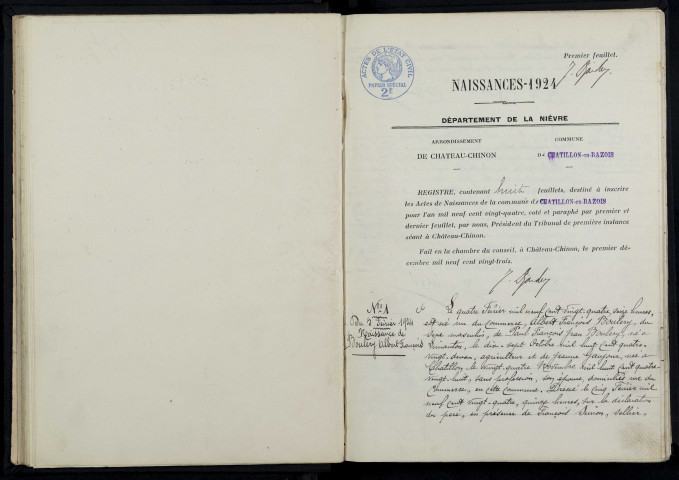 Premier feuillet.
ACTES DE L'ETAT CIVIL
PAPIER SPECIAL
2F
NAISSANCES-1924
DÉPARTEMENT DE LA NIÈVRE
ARRONDISSEMENT
DE CHATEAU-CHINON
COMMUNE
DE CHATILLON-en-BAZOIS
REGISTRE, contenant huit feuillets, destiné à inscrire
les Actes de Naissances de la commune de CHATILLON-en-BAZOIS
pour l'an mil neuf cent vingt-quatre, coté et paraphé par premier et
dernier feuillet, par nous, Président du Tribunal de première instance
séant à Château-Chinon.
Fait en la chambre du conseil, à Château-Chinon, le premier dé-
cembre mil neuf cent vingt-trois.
N° 1
Du 5 Février 1924
Naissance de
Boulery Albert François
Le quatre Février mil neuf cent vingt-quatre, seize heures,
est né rue du Commerce, Albert François Boulery, du
sexe masculin, de Paul François Jean Boulery, né à
le dix-sept Octobre mil huit cent quatre-
vingt- agriculteur et de Jeanne née à
Chatillon, le vingt-quatre Novembre mil huit cent quatre-
vingt-huit, sans profession, son épouse, domiciliés rue du
Commerce, en cette commune. Dressé le cinq Février mil
neuf cent vingt-quatre, quinze heures, sur la déclaration
du père, en présence de François Simon, sellier,